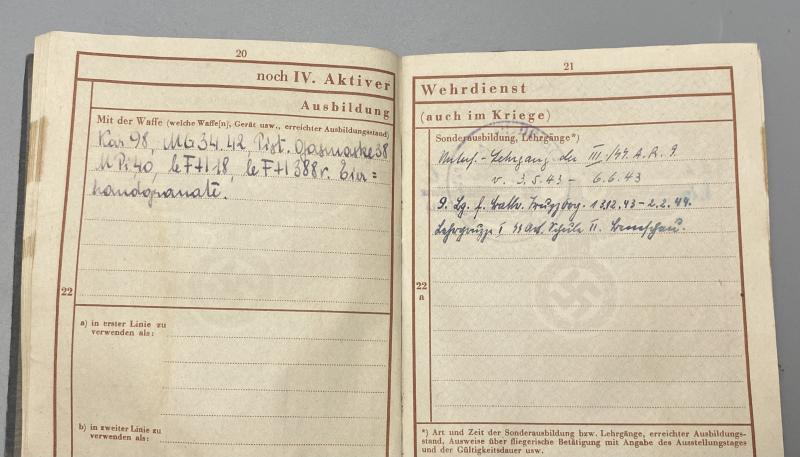 20
noch IV. Aktiver
Ausbildung
Mit der Waffe (welche Waffe[n], Gerät usw., erreichter Ausbildungsstand)
Kar 98, MG 34. 42, Pist. Gasmaske 38
M Pi 40, le F H 18, le F H 388 r. Eier =
handgranate.
22
a) in erster Linie zu
verwenden als:
b) in zweiter Linie zu
verwenden als:
21
Wehrdienst
(auch im Kriege)
Sonderausbildung, Lehrgänge*)
Unterf.-Lehrgang der III./ A. R. 9.
v. 3.5.43 - 6.6.43
9. Lg. f. 13.12.43 - 2.2.44.
Lehrgruppe I Schule II. Beneschau.
22
a
*) Art und Zeit der Sonderausbildung bzw. Lehrgänge, erreichter Ausbildungs-
stand, Ausweise über fliegerische Betätigung mit Angabe des Ausstellungstages
und der Gültigkeitsdauer usw.